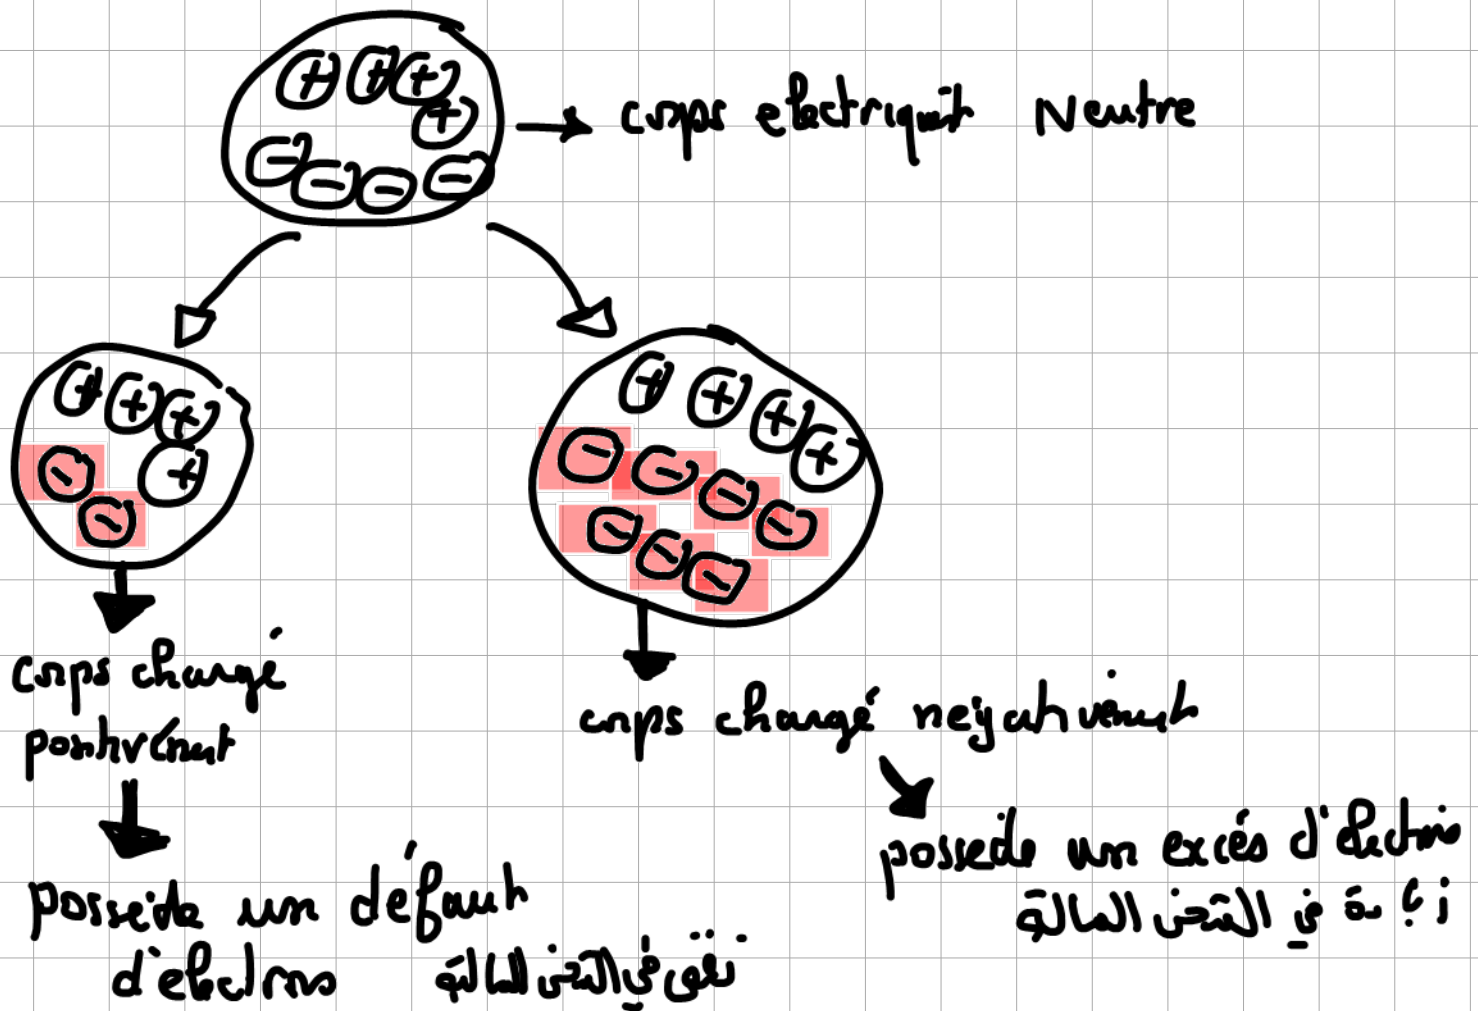 corps electriquent Neutre
corps chargé
positivément
corps chargé négativément
possede un excés d'électrons
زيادة في الشحن السالبة
possede un défaut
d'electrons
نقص في الشحن السالبة